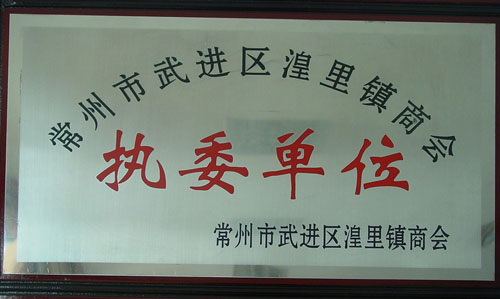 常州市武进区湟里镇商会
执委单位
常州市武进区湟里镇商会